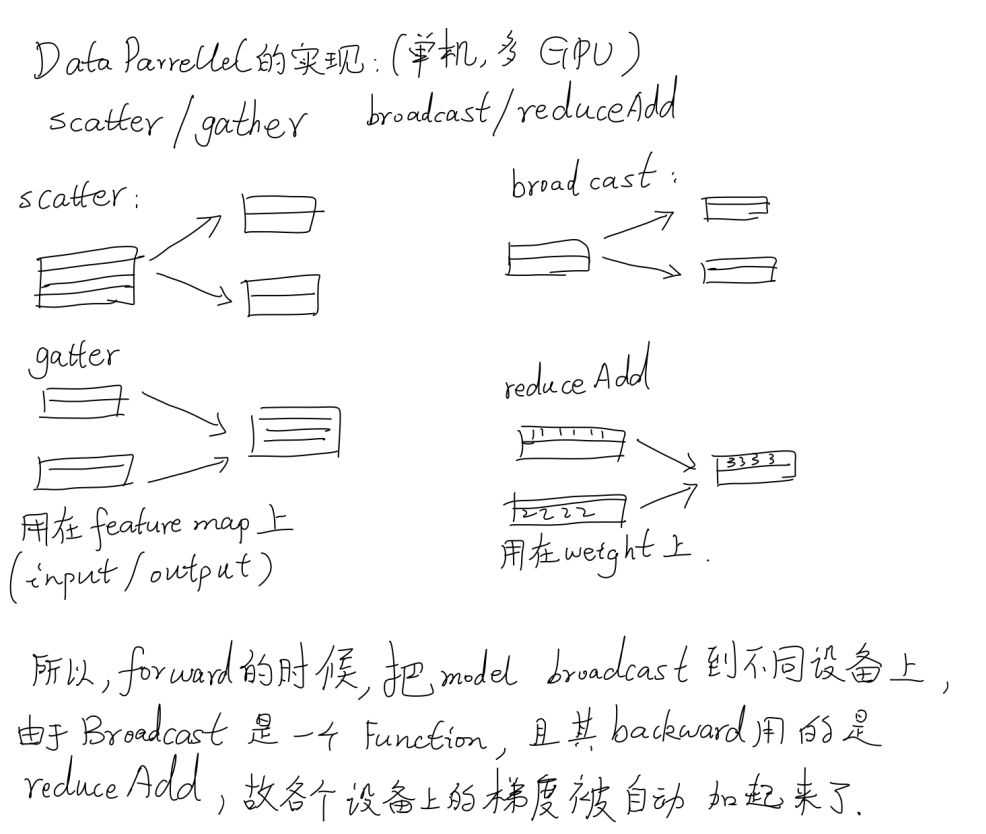 Data Parrellel的实现:(单机,多 GPU)
scatter/gather broadcast/reduceAdd
scatter:
broadcast:
gatter
reduce Add
1 1 1 1 1 1
3 3 3 3
2 2 2 2
用在 feature map 上
(input/output)
用在 weight 上.
所以,forward的时候,把model broadcast 到不同设备上,
由于 Broadcast 是一个 Function,且其backward用的是
reduce Add,故各个设备上的梯度被自动 加起来了.